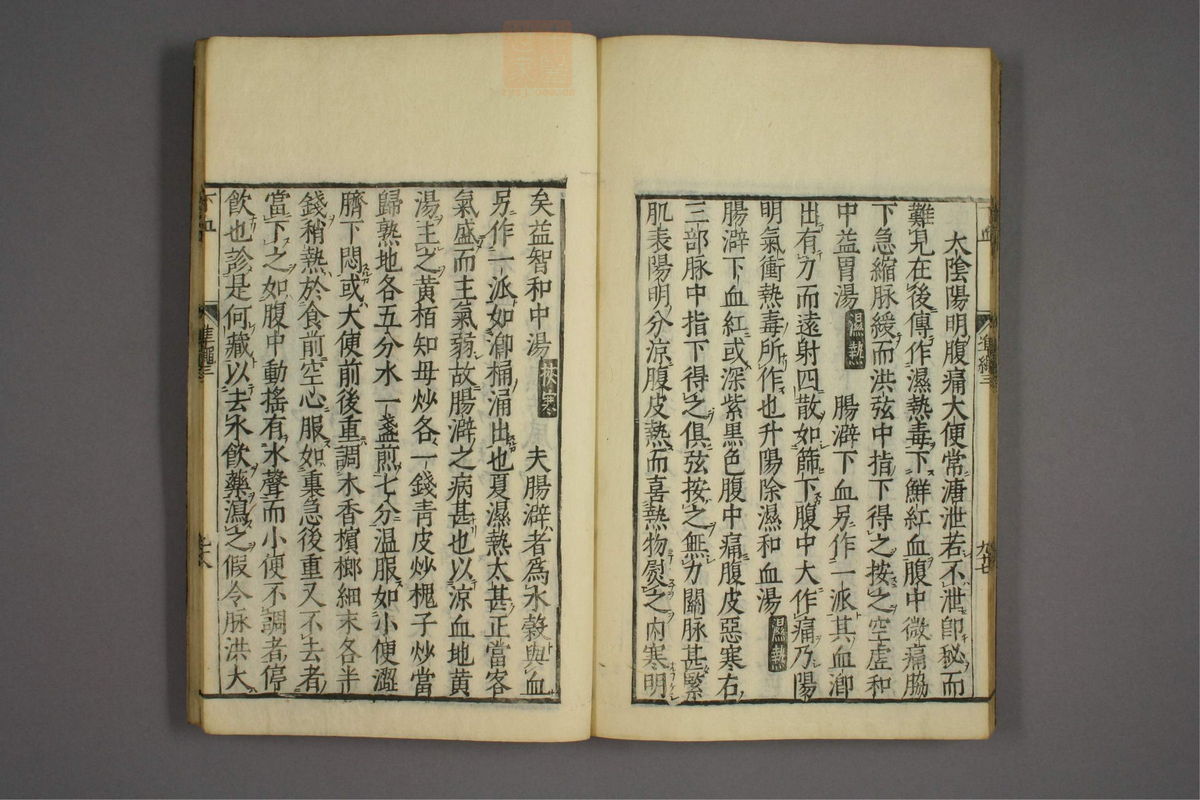 太陰陽明腹痛大便常溏泄若不泄卽秘而
難見在後傳作濕熱毒下鮮紅血腹中微痛脇
下急縮脉緩而洪弦中指下得之按之空虛和
中益胃湯 濕熱 腸澼下血另作一派其血喞
出有力而遠射四散如篩下腹中大作痛乃陽
明氣衝熱毒所作也升陽除濕和血湯 濕熱
腸澼下血紅或深紫黑色腹中痛腹皮惡寒右
三部脉中指下得之俱弦按之無力關脉甚緊
肌表陽明分涼腹皮熱而喜熱物熨之內寒明
矣益智和中湯 挾寒 夫腸澼者爲水穀與血
另作一派如喞桶涌出也夏濕熱太甚正當客
氣盛而主氣弱故腸澼之病甚也以涼血地黃
湯主之黃栢知母炒各一錢青皮炒槐子炒當
歸熟地各五分水一盞煎七分温服如小便澀
臍下悶或大便前後重調木香檳榔細末各半
錢稍熱於食前空心服如裏急後重又不去者
當下之如腹中動搖有水聲而小便不調者停
飲也診是何藏以去水飲藥瀉之假令脉洪大
下血
準繩三